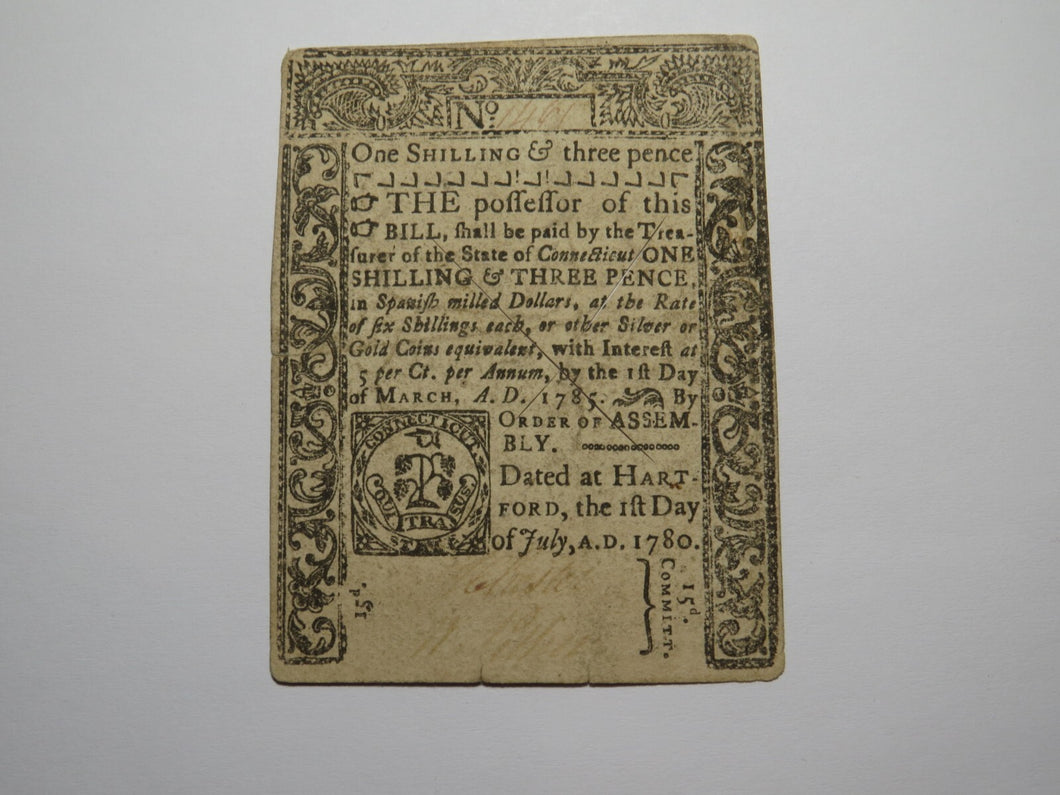 No. 1461
One SHILLING & three pence
THE poſſeſſor of this
BILL, ſhall be paid by the Trea-
ſurer of the State of Connecticut ONE
SHILLING & THREE PENCE,
in Spaniſh milled Dollars, at the Rate
of ſix Shillings each, or other Silver or
Gold Coins equivalent, with Intereſt at
5 per Ct. per Annum, by the 1ſt Day
of MARCH, A. D. 1785. By
ORDER OF ASSEM-
BLY.
Dated at HART-
FORD, the 1ſt Day
of July, A.D. 1780.
CONNECTICUT
QUI TRA SUS
15d.
15d.
COMMITT.